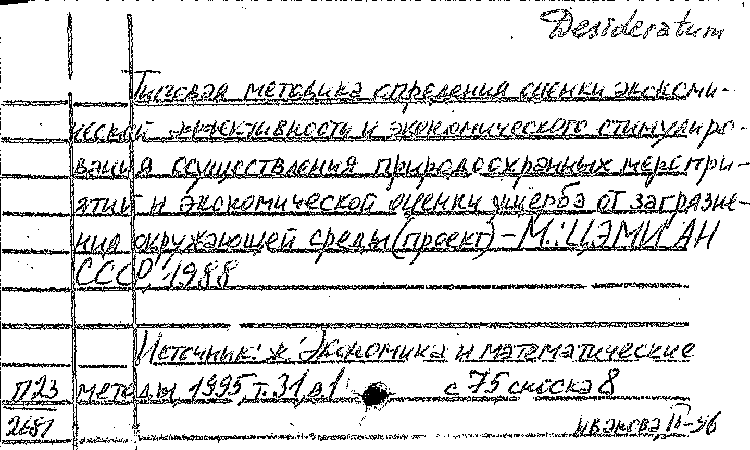 Desideratum
Типовая методика опреления оценки экономи-
ческой эффективности и экономического стимулиро-
вания осуществления природоохранных меропри-
ятий и экономической оценки ущерба от загрязне-
ния окружающей среды (проект) - М.: ЦЭМИ АН
СССР, 1988
Источник: ж. Экономика и математические
П23 методы 1995, т. 31 в 1 с 75 сноска 8
2681 Иванова II-96